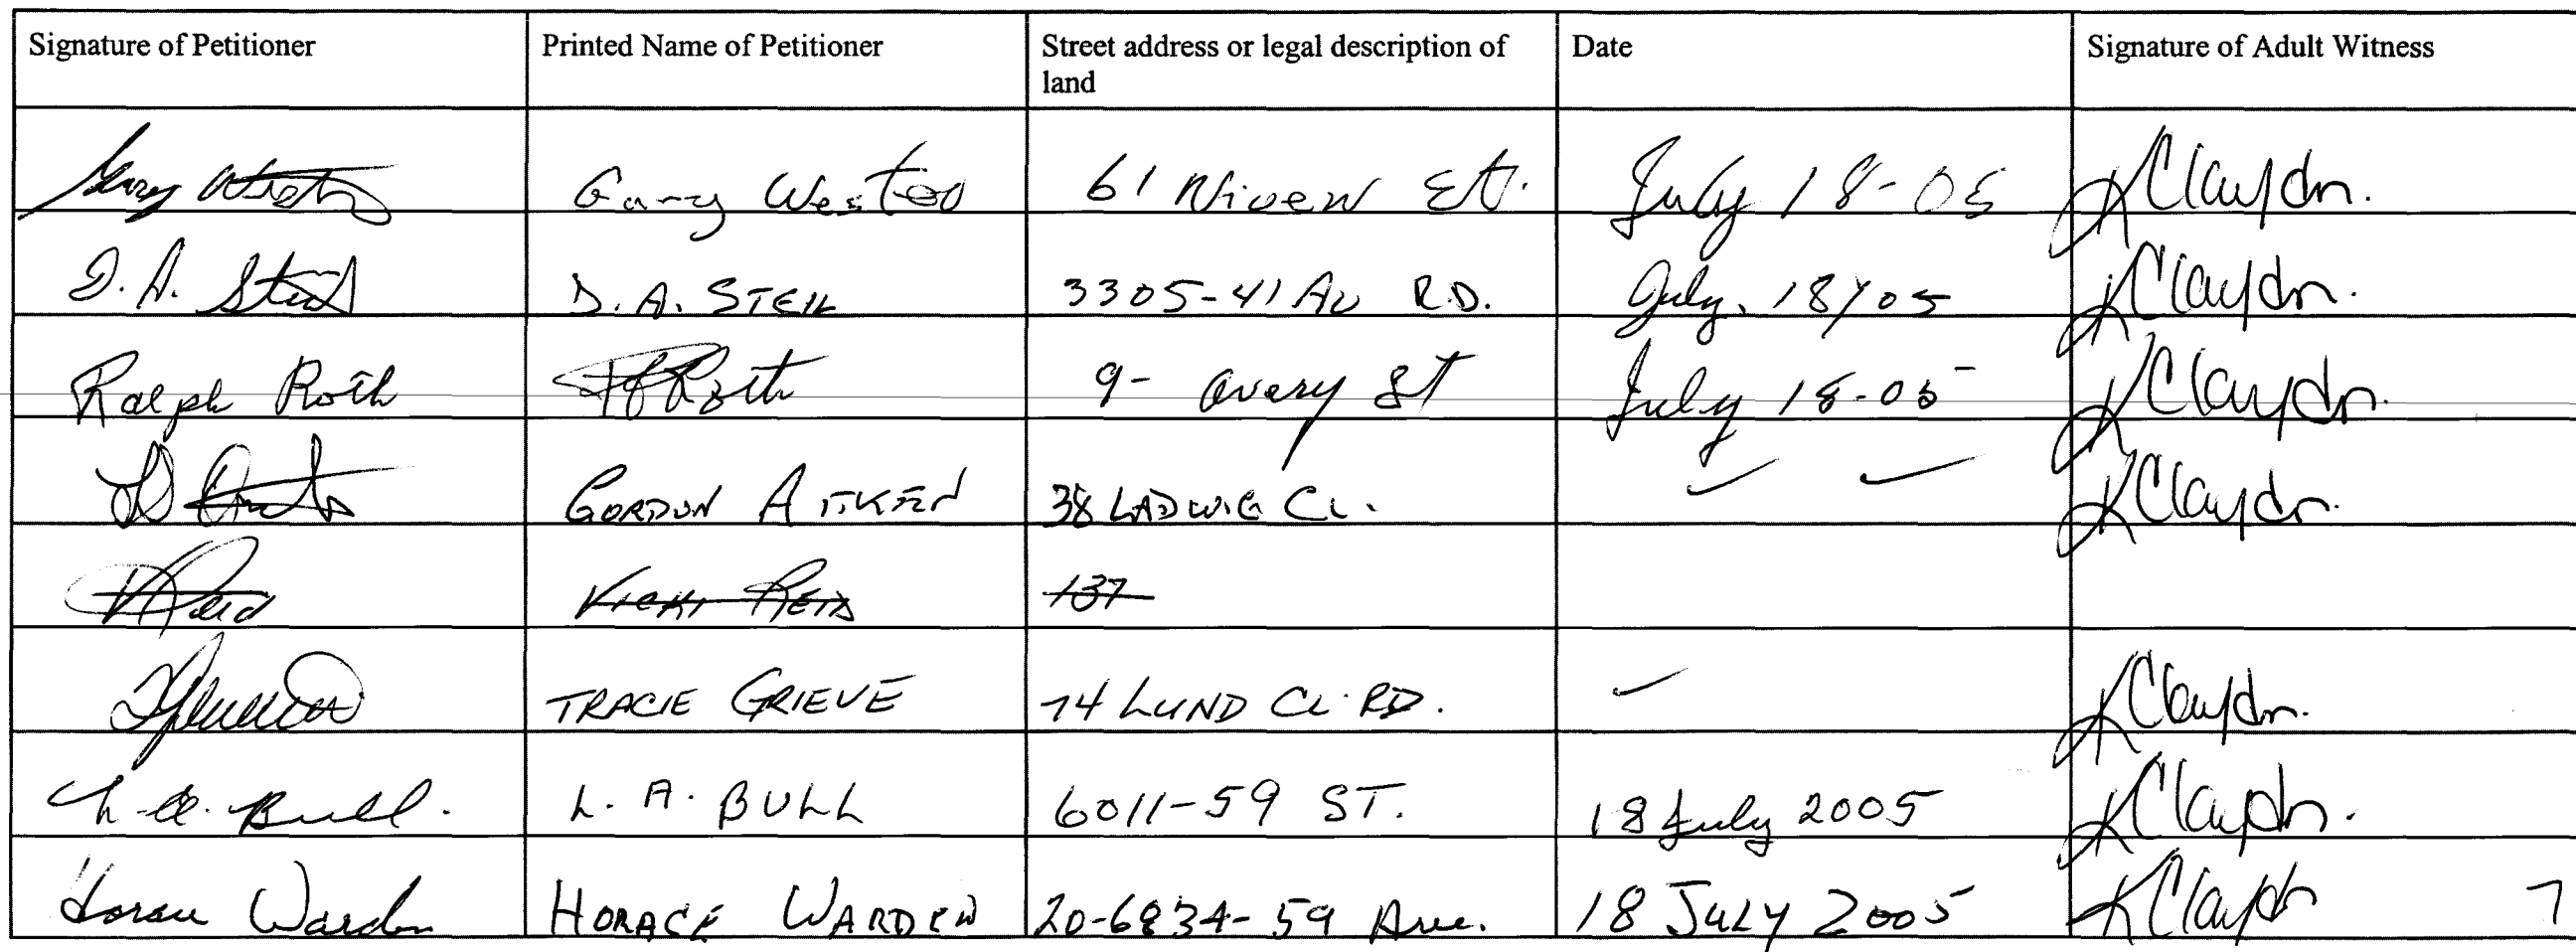 Signature of Petitioner Printed Name of Petitioner Street address or legal description of land Date Signature of Adult Witness
Gary Weston Gary Weston 61 Niven St. July 18-05 K Claydon.
D.A. Steil D.A. STEIL 3305-41 AV R.D. July, 18/05 K Claydon.
Ralph Roth Roth 9- Avery St July 18-05 K Claydon.
GORDON AITKEN 38 LADWIG CL. ✓ ✓ K Claydon.
V Reid VICKI REID 137
TRACIE GRIEVE 74 LUND CL. RD. ✓ K Claydon.
L.A. Bull. L.A. BULL 6011-59 ST. 18 July 2005 K Claydon.
Horace Warden HORACE WARDEN 20-6834-59 Ave. 18 JULY 2005 K Claydon 7